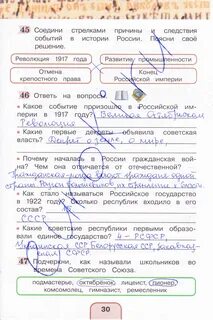 45 Соедини стрелками причины и следствия
событий в истории России. Поясни своё
решение.
Революция 1917 года
Развитие промышленности
Отмена
крепостного права
Конец
Российской империи
46 Ответь на вопросы.
• Какое событие произошло в Российской
империи в 1917 году? Великая Октябрьская
Революция
• Какие первые декреты объявила советская
власть? Декрет о земле, о мире,
• Почему началась в России гражданская вой-
на? Чем она отличается от отечественной?
гражданская война граждане одной
страны.
• Как стало называться Российское государство
в 1922 году? Сколько республик входило в
его состав?
СССР
• Какие советские республики первыми образо-
вали единое государство? 4 - РСФСР,
Украинская ССР, Белорусская ССР, Закавказ-
СФСР.
47 Подчеркни, как называли школьников во
времена Советского Союза.
подмастерье, октябрёнок, лицеист, пионер,
комсомолец, гимназист, ремесленник
30